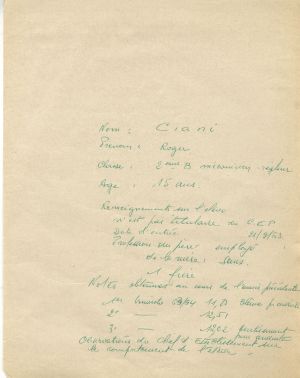 Nom : Ciani
Prénom : Roger
Classe : 2ème B mécanicien-régleur
Age : 15 ans
Renseignements sur l'élève
n'est pas titulaire du C.E.P
Date d'entrée 21/9/53
Profession du père : employé
de la mère : sans.
1 frère
Notes obtenues au cours de l'année précédente
1er 53/54 11,83
2e — 12,51
3e — 12,02
Observations du Chef d'Etablissement sur
le comportement de l'élève.